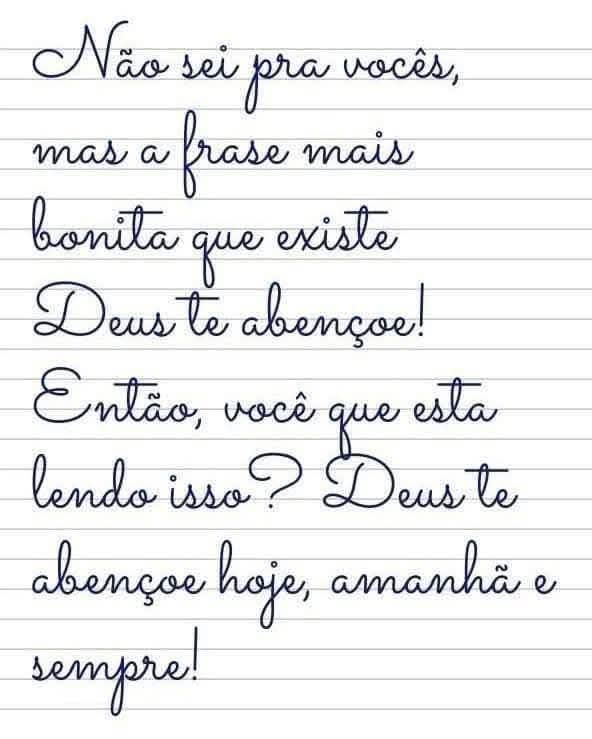 Não sei pra vocês,
mas a frase mais
bonita que existe
Deus te abençoe!
Então, você que esta
lendo isso? Deus te
abençoe hoje, amanhã e
sempre!